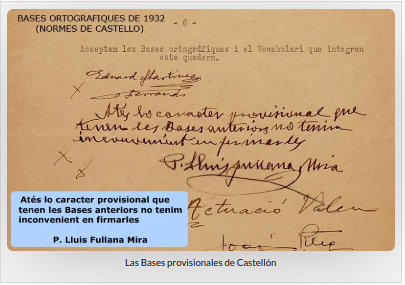 BASES ORTOGRAFIQUES DE 1932
(NORMES DE CASTELLO)
- 6 -
Acceptem les Bases ortogràfiques i el Vocabulari que integren
este quadern.
Eduard Martinez
Ferrando
Atés lo caracter provisional que
tenen les Bases anteriors no tenim
inconvenient en firmarles
P. Lluis Fullana Mira
Atés lo caracter provisional que
tenen les Bases anteriors no tenim
inconvenient en firmarles
P. Lluis Fullana Mira
Actuació Valen
Las Bases provisionales de Castellón